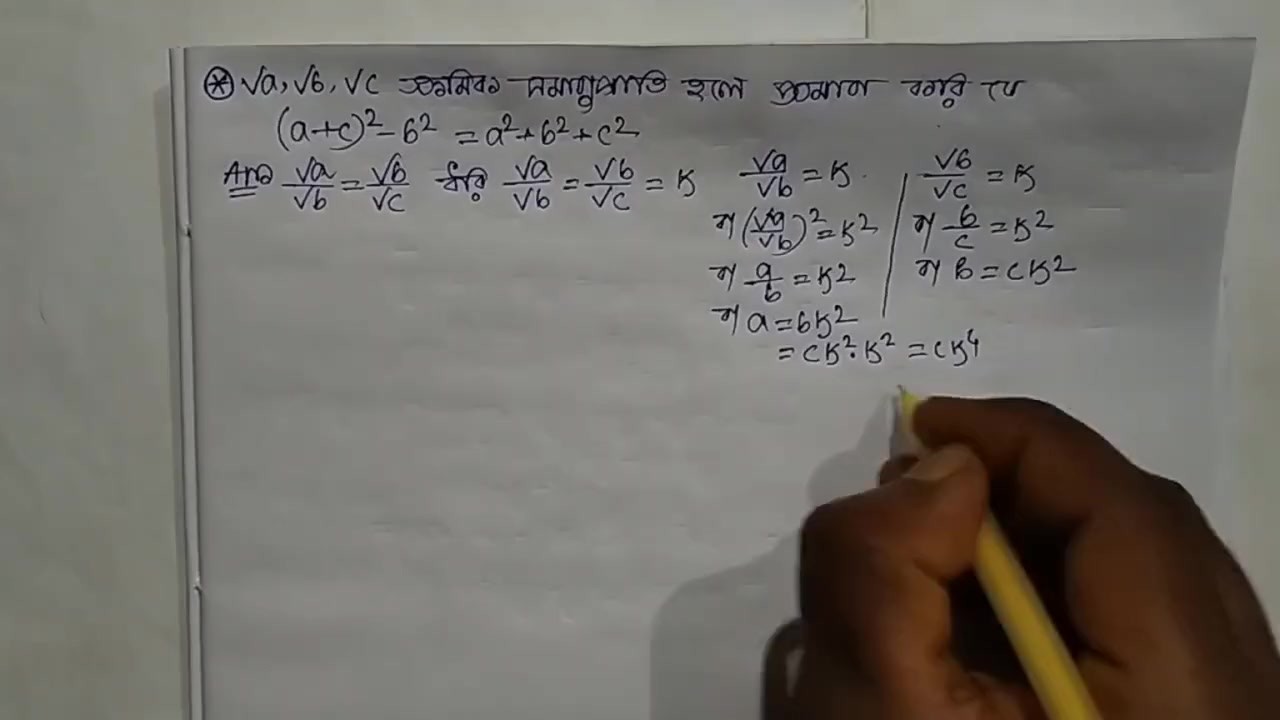 ⊛ √a, √b, √c ক্রমিক সমানুপাতি হলে প্রমাণ করি যে
(a+c)² - b² = a² + b² + c²
Ans √a/√b = √b/√c ধরি √a/√b = √b/√c = K
√a/√b = K
বা (√a/√b)² = K²
বা a/b = K²
বা a = bK²
= CK².K² = CK⁴
√b/√c = K
বা b/c = K²
বা B = CK²